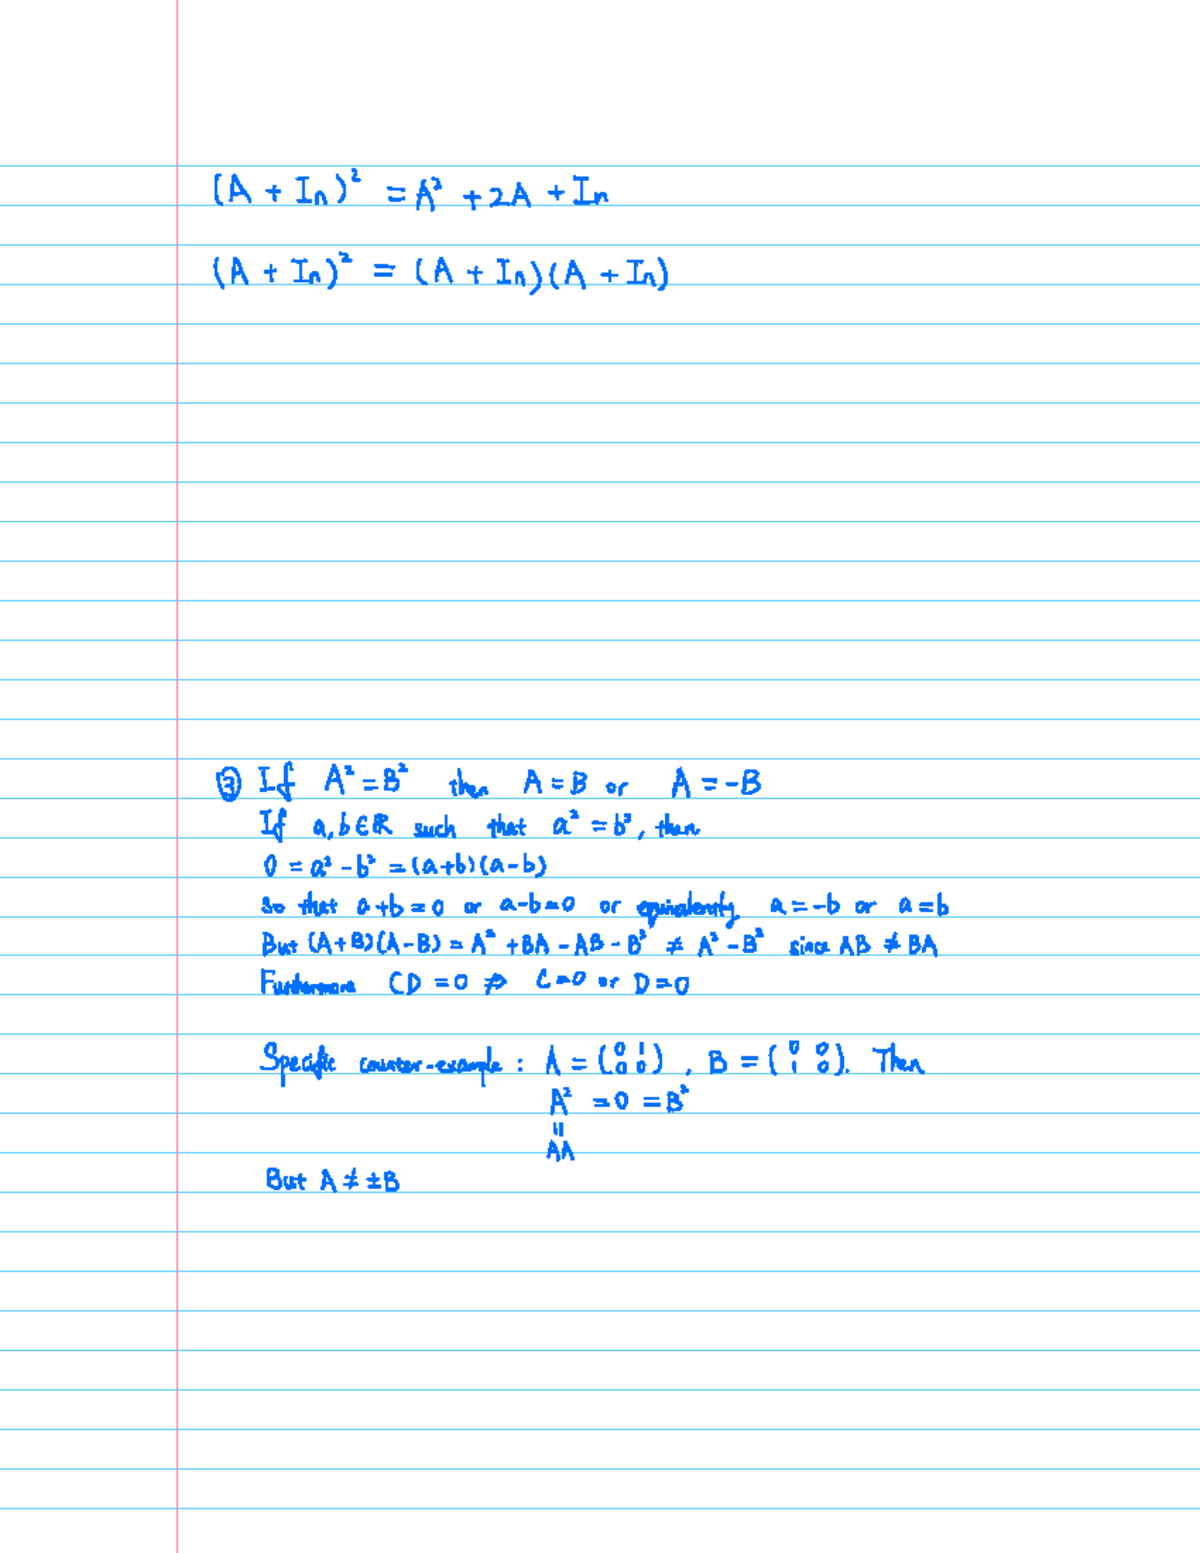 (A + In)² = A² + 2A + In
(A + In)² = (A + In)(A + In)
③ If A² = B² then A = B or A = -B
If a, b ∈ ℝ such that a² = b², then
0 = a² - b² = (a+b)(a-b)
so that a+b=0 or a-b=0 or equivalently a=-b or a=b
But (A+B)(A-B) = A² + BA - AB - B² ≠ A² - B² since AB ≠ BA
Furthermore CD = 0 ⇏ C=0 or D=0
Specific counter-example : A = (0 1 0 0), B = (0 0 1 0). Then
A² = 0 = B²
=
AA
But A ≠ ±B